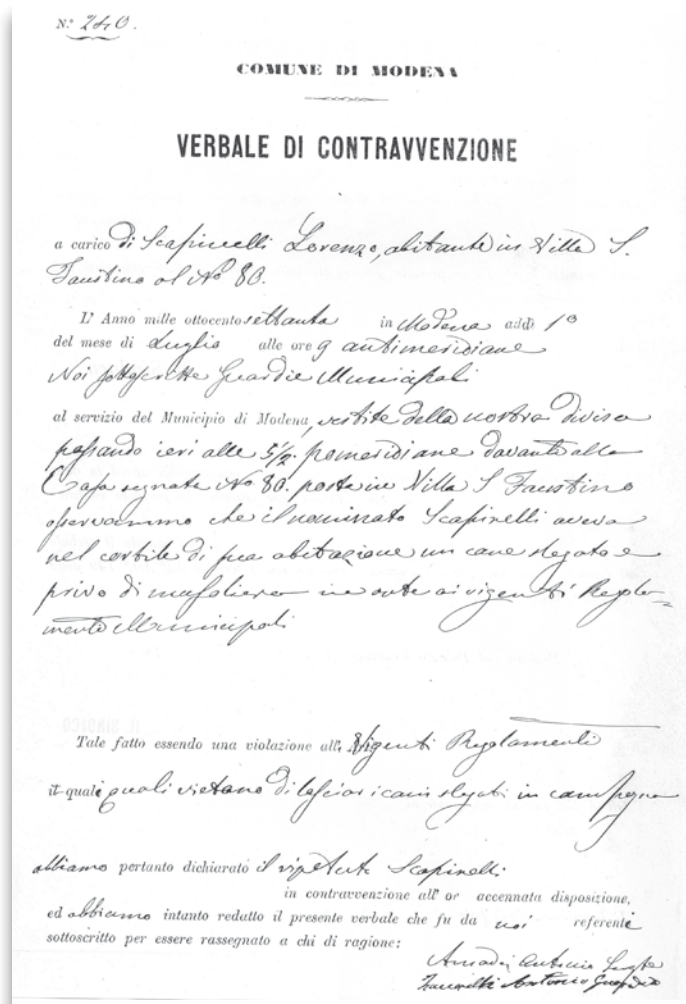 N.° 240.
COMUNE DI MODENA
VERBALE DI CONTRAVVENZIONE
a carico di Scapinelli Lorenzo, abitante in Villa S.
Faustino al N° 80.
L' Anno mille ottocento settanta in Modena addì 1°
del mese di Luglio alle ore 9 antimeridiane
Noi sottoscritte Guardie Municipali
al servizio del Municipio di Modena, vestite della nostra divisa
passando ieri alle 5½ pomeridiane davanti alla
Casa segnata N° 80. posta in Villa S Faustino
osservammo che il nominato Scapinelli aveva
nel cortile di sua abitazione un cane slegato e
privo di musoliera in onte ai vigenti Regola-
menti Municipali
Tale fatto essendo una violazione all, Vigenti Regolamenti
il quali quali vietano di lasciar i cani slegati in campagna
abbiamo pertanto dichiarato il Scapinelli
in contravvenzione all' or accennata disposizione,
ed abbiamo intanto redatto il presente verbale che fu da noi referenti
sottoscritto per essere rassegnato a chi di ragione:
Amadei Antonio
Antonio Guardia